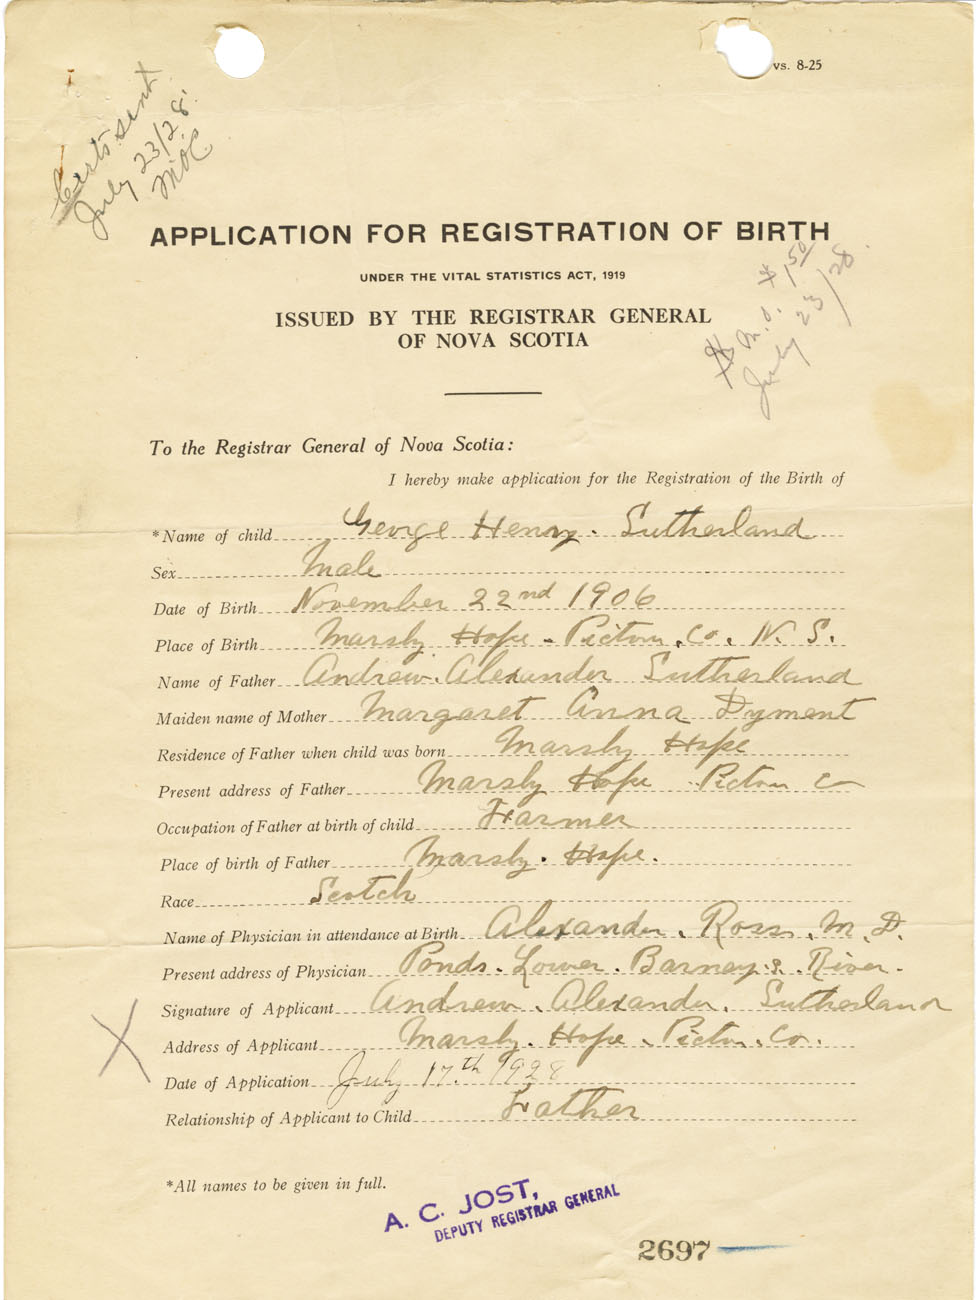 vs. 8-25
Certs. sent
July 23/28.
APPLICATION FOR REGISTRATION OF BIRTH
UNDER THE VITAL STATISTICS ACT, 1919
ISSUED BY THE REGISTRAR GENERAL
OF NOVA SCOTIA
M.O. $1.50
July 23/28.
To the Registrar General of Nova Scotia:
I hereby make application for the Registration of the Birth of
*Name of child George Henry. Sutherland
Sex Male
Date of Birth November 22nd 1906
Place of Birth Marshy Hope - Pictou. Co. N. S.
Name of Father Andrew. Alexander Sutherland
Maiden name of Mother Margaret Anna Dyment
Residence of Father when child was born Marshy Hope
Present address of Father Marshy Hope Pictou Co
Occupation of Father at birth of child Farmer
Place of birth of Father Marshy. Hope.
Race Scotch
Name of Physician in attendance at Birth Alexander. Ross. M. D.
Present address of Physician Ponds. Lower. Barney's. River.
Signature of Applicant Andrew. Alexander. Sutherland
Address of Applicant Marshy. Hope. Pictou. Co.
Date of Application July 17th. 1928
Relationship of Applicant to Child Father
*All names to be given in full.
A. C. JOST,
DEPUTY REGISTRAR GENERAL
2697